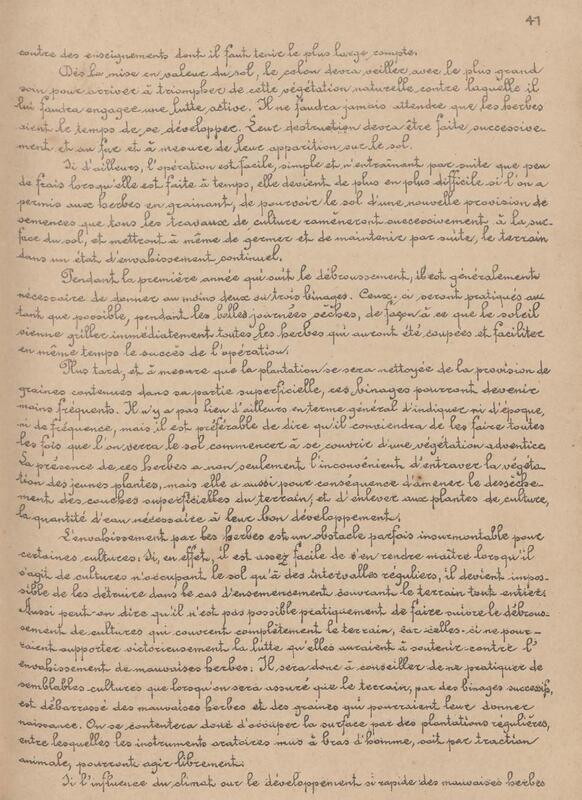 41
contre des enseignements dont il faut tenir le plus large compte.
Dès la mise en valeur du sol, le colon devra veiller avec le plus grand
soin pour arriver à triompher de cette végétation naturelle contre laquelle il
lui faudra engager une lutte active. Il ne faudra jamais attendre que les herbes
aient le temps de se développer. Leur destruction devra être faite, successive-
ment et au fur et à mesure de leur apparition sur le sol.
Si d'ailleurs, l'opération est facile, simple et n'entraînant par suite que peu
de frais lorsqu'elle est faite à temps, elle devient de plus en plus difficile si l'on a
permis aux herbes en grainant, de pourvoir le sol d'une nouvelle provision de
semences que tous les travaux de culture ramèneront successivement à la sur-
face du sol, et mettront à même de germer et de maintenir par suite, le terrain
dans un état d'envahissement continuel.
Pendant la première année qui suit le débroussement, il est généralement
nécessaire de donner au moins deux ou trois binages. Ceux-ci seront pratiqués au-
tant que possible, pendant les belles journées sèches, de façon à ce que le soleil
vienne griller immédiatement toutes les herbes qui auront été coupées et faciliter
en même temps le succès de l'opération.
Plus tard, et à mesure que la plantation se sera nettoyée de la provision de
graines contenues dans sa partie superficielle, ces binages pourront devenir
moins fréquents. Il n'y a pas lieu d'ailleurs en terme général d'indiquer ni d'époque,
ni de fréquence, mais il est préférable de dire qu'il conviendra de les faire toutes
les fois que l'on verra le sol commencer à se couvrir d'une végétation adventice.
La présence de ces herbes a non seulement l'inconvénient d'entraver la végéta-
tion des jeunes plantes, mais elle a aussi pour conséquence d'amener le dessèche-
ment des couches superficielles du terrain, et d'enlever aux plantes de culture,
la quantité d'eau nécessaire à leur bon développement.
L'envahissement par les herbes est un obstacle parfois insurmontable pour
certaines cultures. Si, en effet, il est assez facile de s'en rendre maître lorsqu'il
s'agit de cultures n'occupant le sol qu'à des intervalles réguliers, il devient impos-
sible de les détruire dans le cas d'ensemencement couvrant le terrain tout entier.
Aussi peut-on dire qu'il n'est pas possible pratiquement de faire suivre le débrous-
sement de cultures qui couvrent complètement le terrain, car celles-ci ne pour-
raient supporter victorieusement la lutte qu'elles auraient à soutenir contre l'
envahissement de mauvaises herbes. Il sera donc à conseiller de ne pratiquer de
semblables cultures que lorsqu'on sera assuré que le terrain, par des binages successifs,
est débarrassé des mauvaises herbes et des graines qui pourraient leur donner
naissance. On se contentera donc d'occuper la surface par des plantations régulières,
entre lesquelles les instruments aratoires mus à bras d'homme, soit par traction
animale, pourront agir librement.
Si l'influence du climat sur le développement si rapide des mauvaises herbes